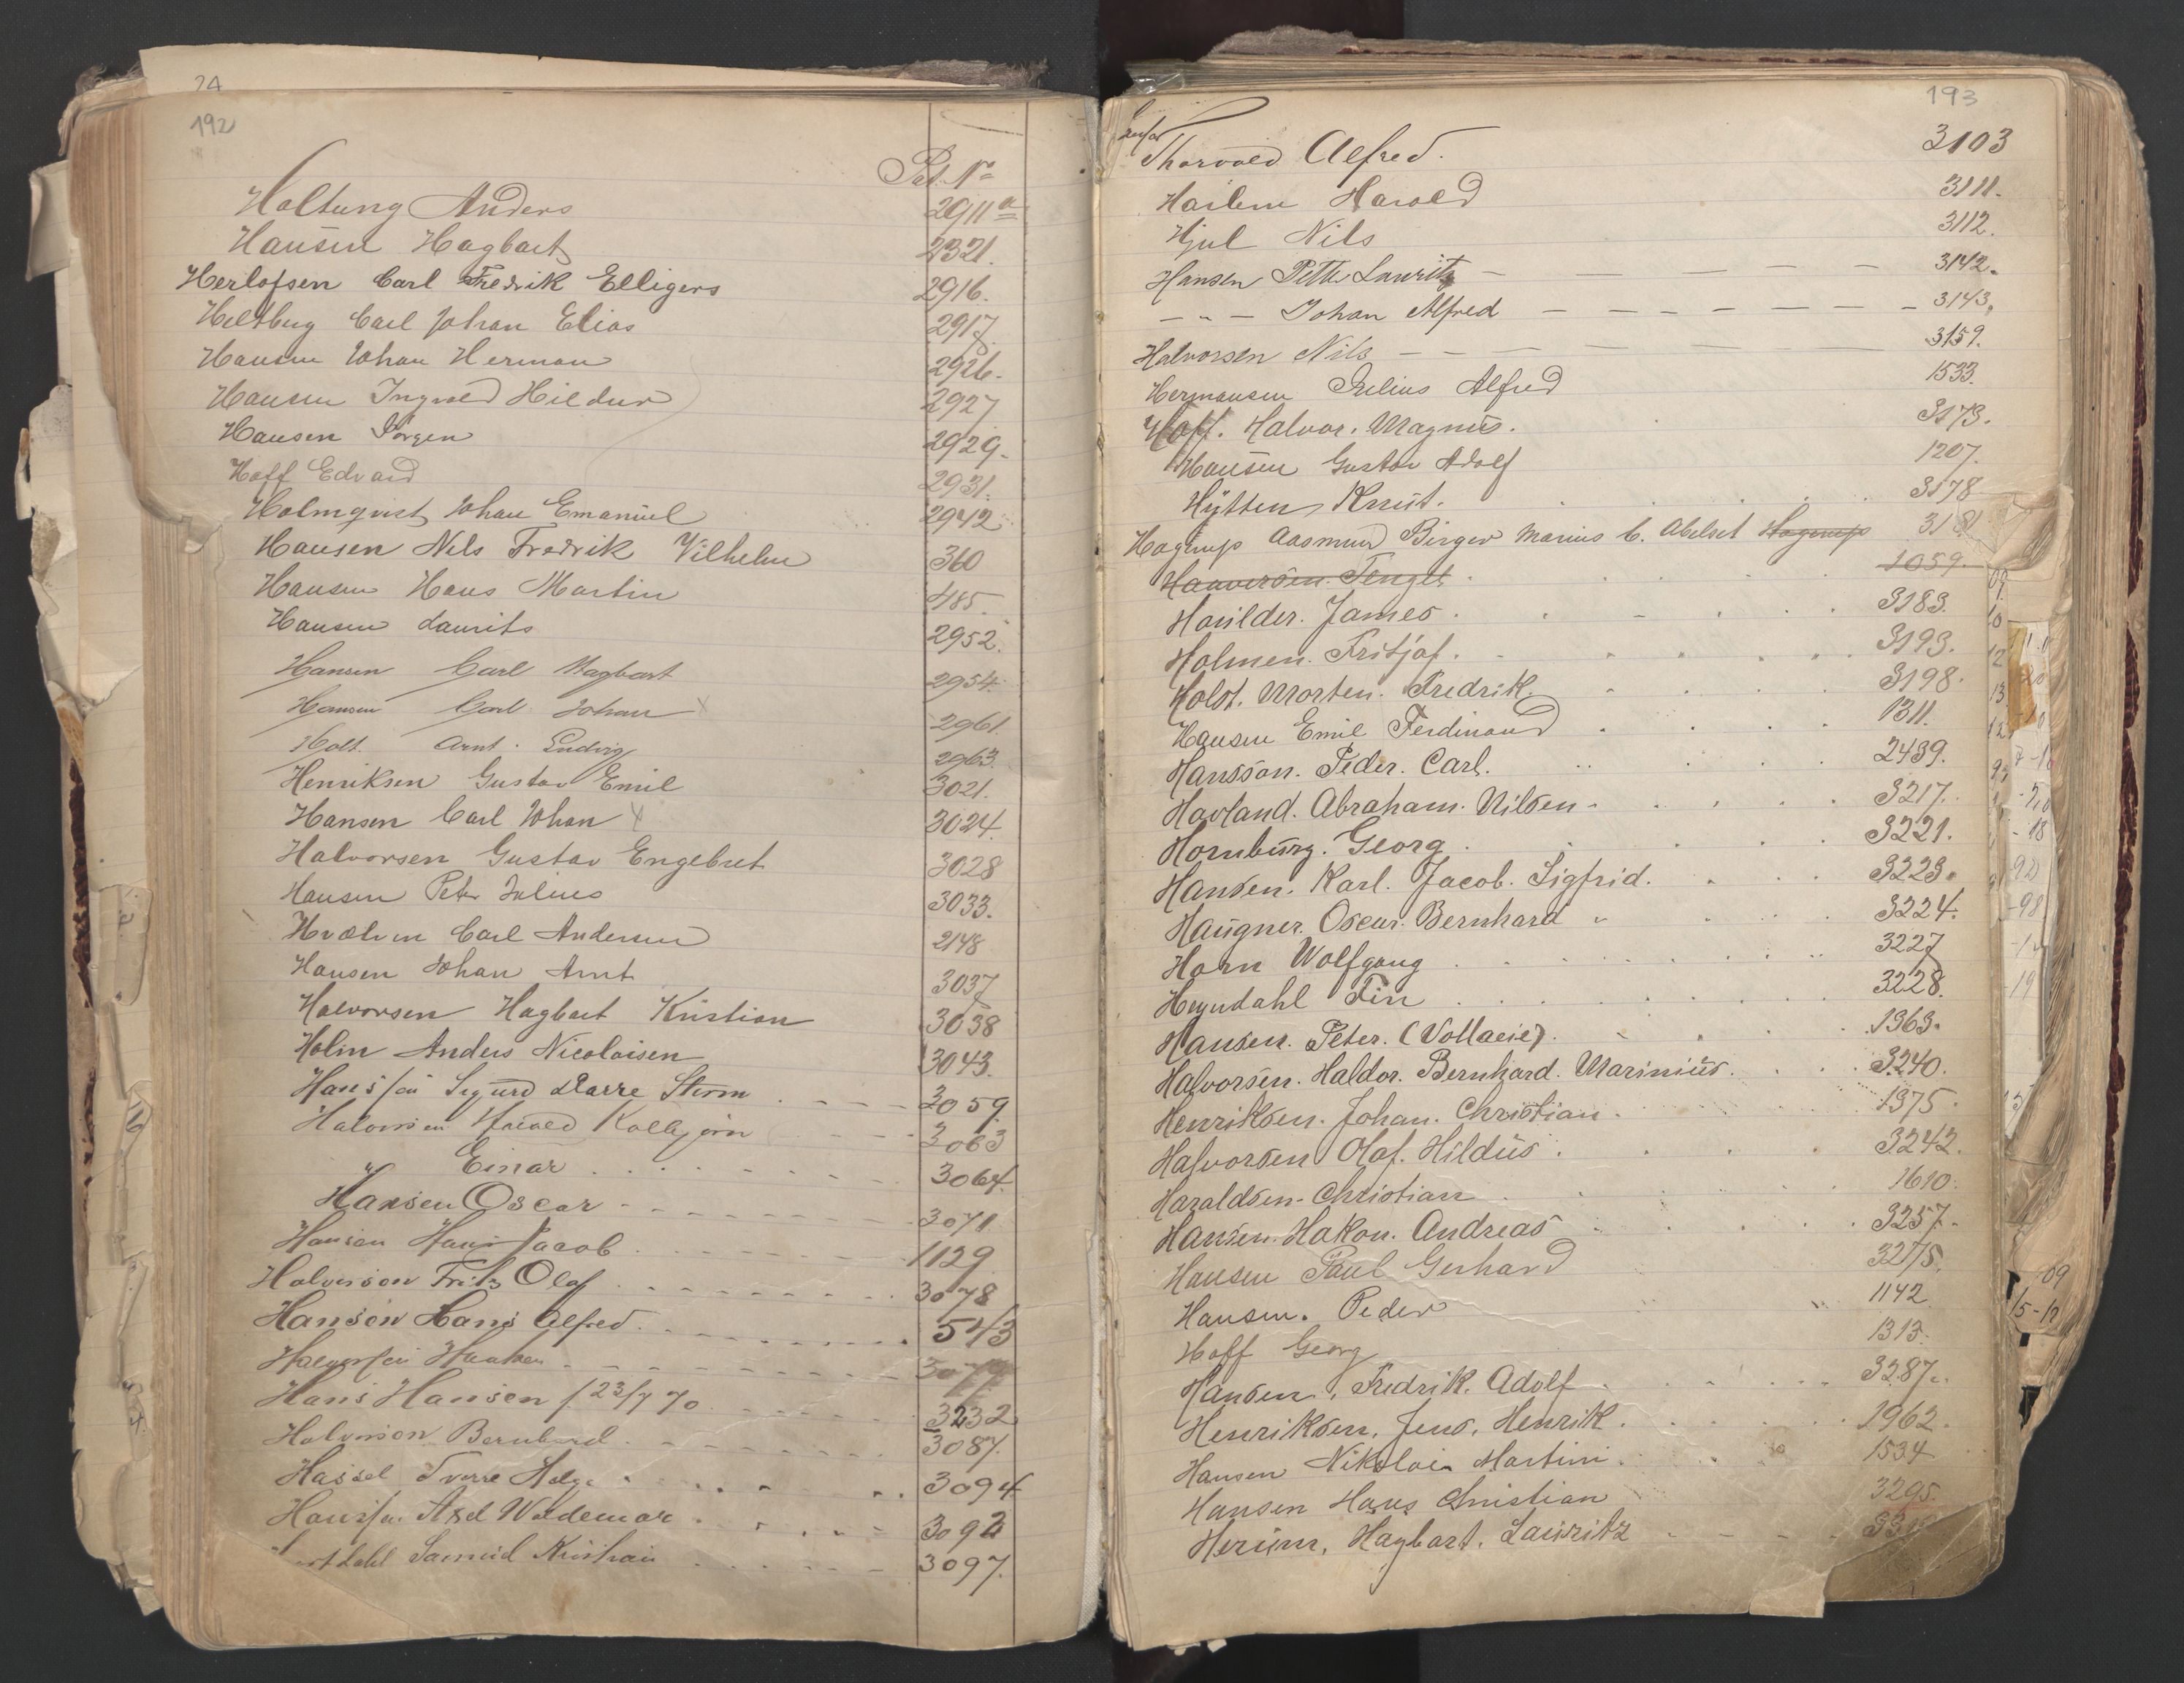 24
192
Pat. No
Holtung Anders 2911a
Hansen Hagbart 2321.
Herlofsen Carl Fredrik Elligers 2916.
Heltberg Carl Johan Elias 2917.
Hansen Johan Herman 2926.
Hansen Ingvald Hildur 2927
Hansen Jørgen 2929.
Hoff Edvard 2931.
Holmqvist Johan Emanuel 2942
Hansen Nils Fredrik Vilhelm 360
Hansen Hans Martin 485.
Hansen Laurits 2952.
Hansen Carl Hagbart 2954.
Hansen Carl Johan x 2961.
Holt. Arnt. Ludvig 2963.
Henriksen Gustav Emil 3021.
Hansen Carl Johan x 3024.
Halvorsen Gustav Engebret 3028
Hansen Peter Julius 3033.
Hvælven Carl Andersen 2148
Hansen Johan Arnt 3037
Halvorsen Hagbart Kristian 3038
Holm Anders Nicolaisen 3043.
Hansen Sigurd Darre Sterm 3059.
Halvorsen Harald Kolbjørn 3063
" Einar 3064.
Hansen Oscar 3071
Hansen Hans Jacob 1129
Halvorson Fritz Olaf 3078
Hanson Hans Alfred 543
Halvorsen Haaken 3077
Hans Hansen f 23/7 70 3232
Halvorson Bernhard 3087.
Hassel Sverre Helge 3094
Hansen Axel Waldemar 3092
Samuel Kristian 3097.
193
Hansen Thorvald Alfred. 3103
Harlem Harald 3111.
Hjul Nils 3112.
Hansen Petter Lauritz 3142.
— " — Johan Alfred 3143.
Halvorsen Nils 3159.
Hermansen Julius Alfred 1533.
Hoff. Halvor. Magnus. 3173.
Hansen Gustav Adolf 1207.
Hÿtten Knut. 3178
Hagrup Aasmund Birger Marius C. Abelset Hagrup 3181
Haaversen Tenget. 1059.
Houlder. James. 3183.
Holmen. Fritjof. 3193.
Holst. Morten. Fredrik. 3198.
Hansen Emil Ferdinand 1311.
Hansson. Peder. Carl. 2439.
Havland. Abraham. Nilsen. 3217.
Hornburg. Georg. 3221.
Hansen. Karl. Jacob. Sigfrid. 3223.
Haugner. Oscar. Bernhard 3224.
Horn Wolfgang 3227
Heyndahl Fin 3228.
Hansen. Peter. (Vollaeie). 1363.
Halvorsen. Haldor. Bernhard. Marinius. 3240.
Henriksen. Johan. Christian. 1375
Halvorsen Olaf. Hildus. 3242.
Haraldsen. Christian 1610.
Hansen. Hakon. Andreas 3257.
Hansen Paul Gerhard 3275.
Hansen. Peder 1142
Hoff Georg 1313.
Hansen, Fredrik. Adolf 3287.
Henriksen, Jens, Henrik. 1962.
Hansen Nikolai Martini. 1534
Hansen Hans Christian 3295.
Hagbart. Lauritz